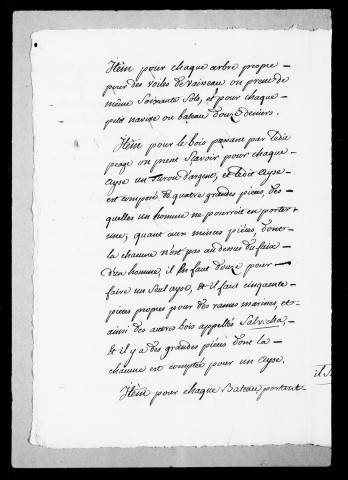 Item pour chaque arbre propre
pour des voiles de vaisseau on prend de
même Soixante Sols, et pour chaque
petit navire ou bateau douze deniers.
Item pour le bois passant par ledit
peage on prent Sçavoir pour chaque
ayse un Turon d'argent, et ledit ayse
est composé de quatre grandes pièces, des-
quelles un homme ne pourroit en porter
une; quant aux minces pièces dont
la chacune n'est pas au dessus du faix
d'un homme, il en faut douze pour
faire un seul ayse, & il faut cinquante
pièces propres pour des rames marines, et
ainsi des autres bois appellés Salvatia,
& il y a des grandes pièces dont la
chacune est comptée pour un ayse.
Item pour chaque Bateau portant